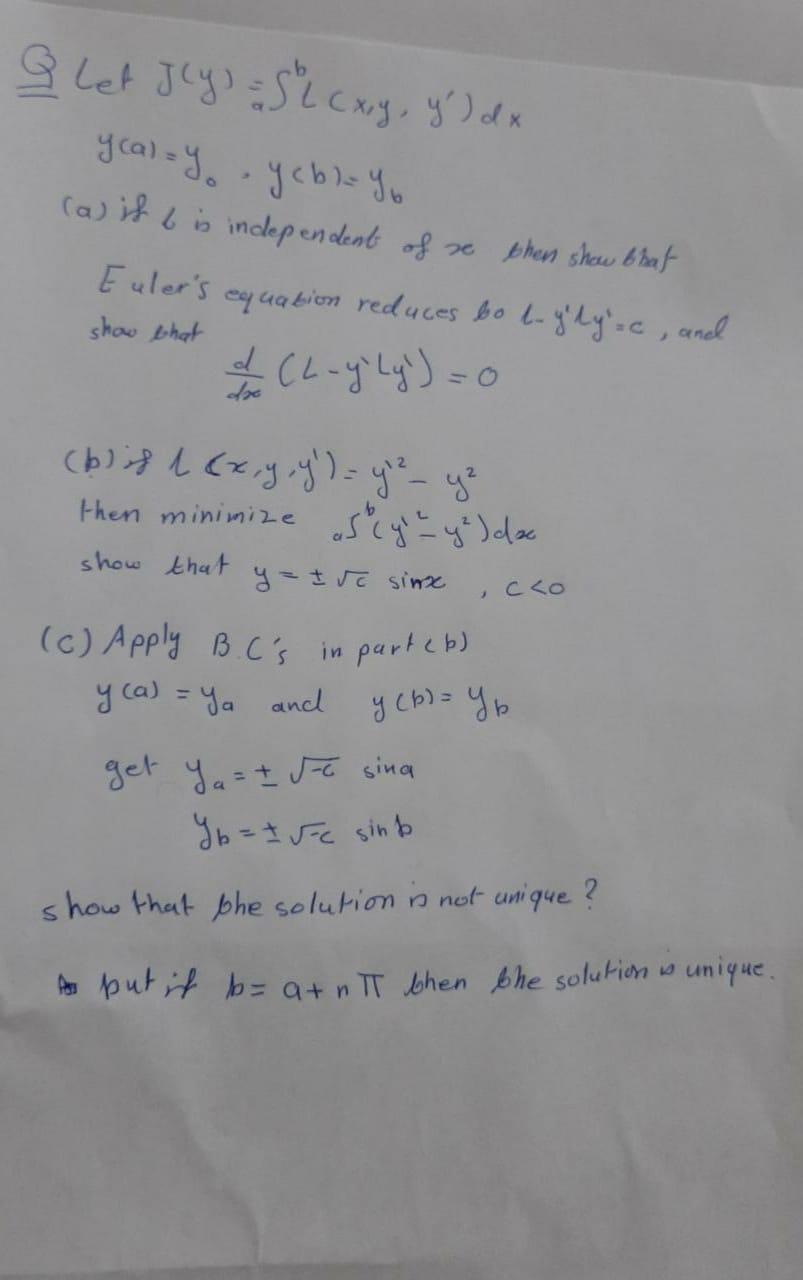 Q Let J(y) = ₐ∫ᵇ L(x,y, y') dx
y(a) = y₀ , y(b) = y_b
(a) if L is independent of x then show that
Euler's equation reduces to L - y'Ly' = c , and
show that
d/dx (L - y'Ly') = 0
(b) if L (x, y, y') = y'² - y²
then minimize ₐ∫ᵇ (y'² - y²) dx
show that y = ± √c sinx , c < 0
(c) Apply B.C's in part (b)
y(a) = yₐ and y(b) = y_b
get yₐ = ± √-c sin a
y_b = ± √-c sin b
show that the solution is not unique ?
but if b = a + n π then the solution is unique.